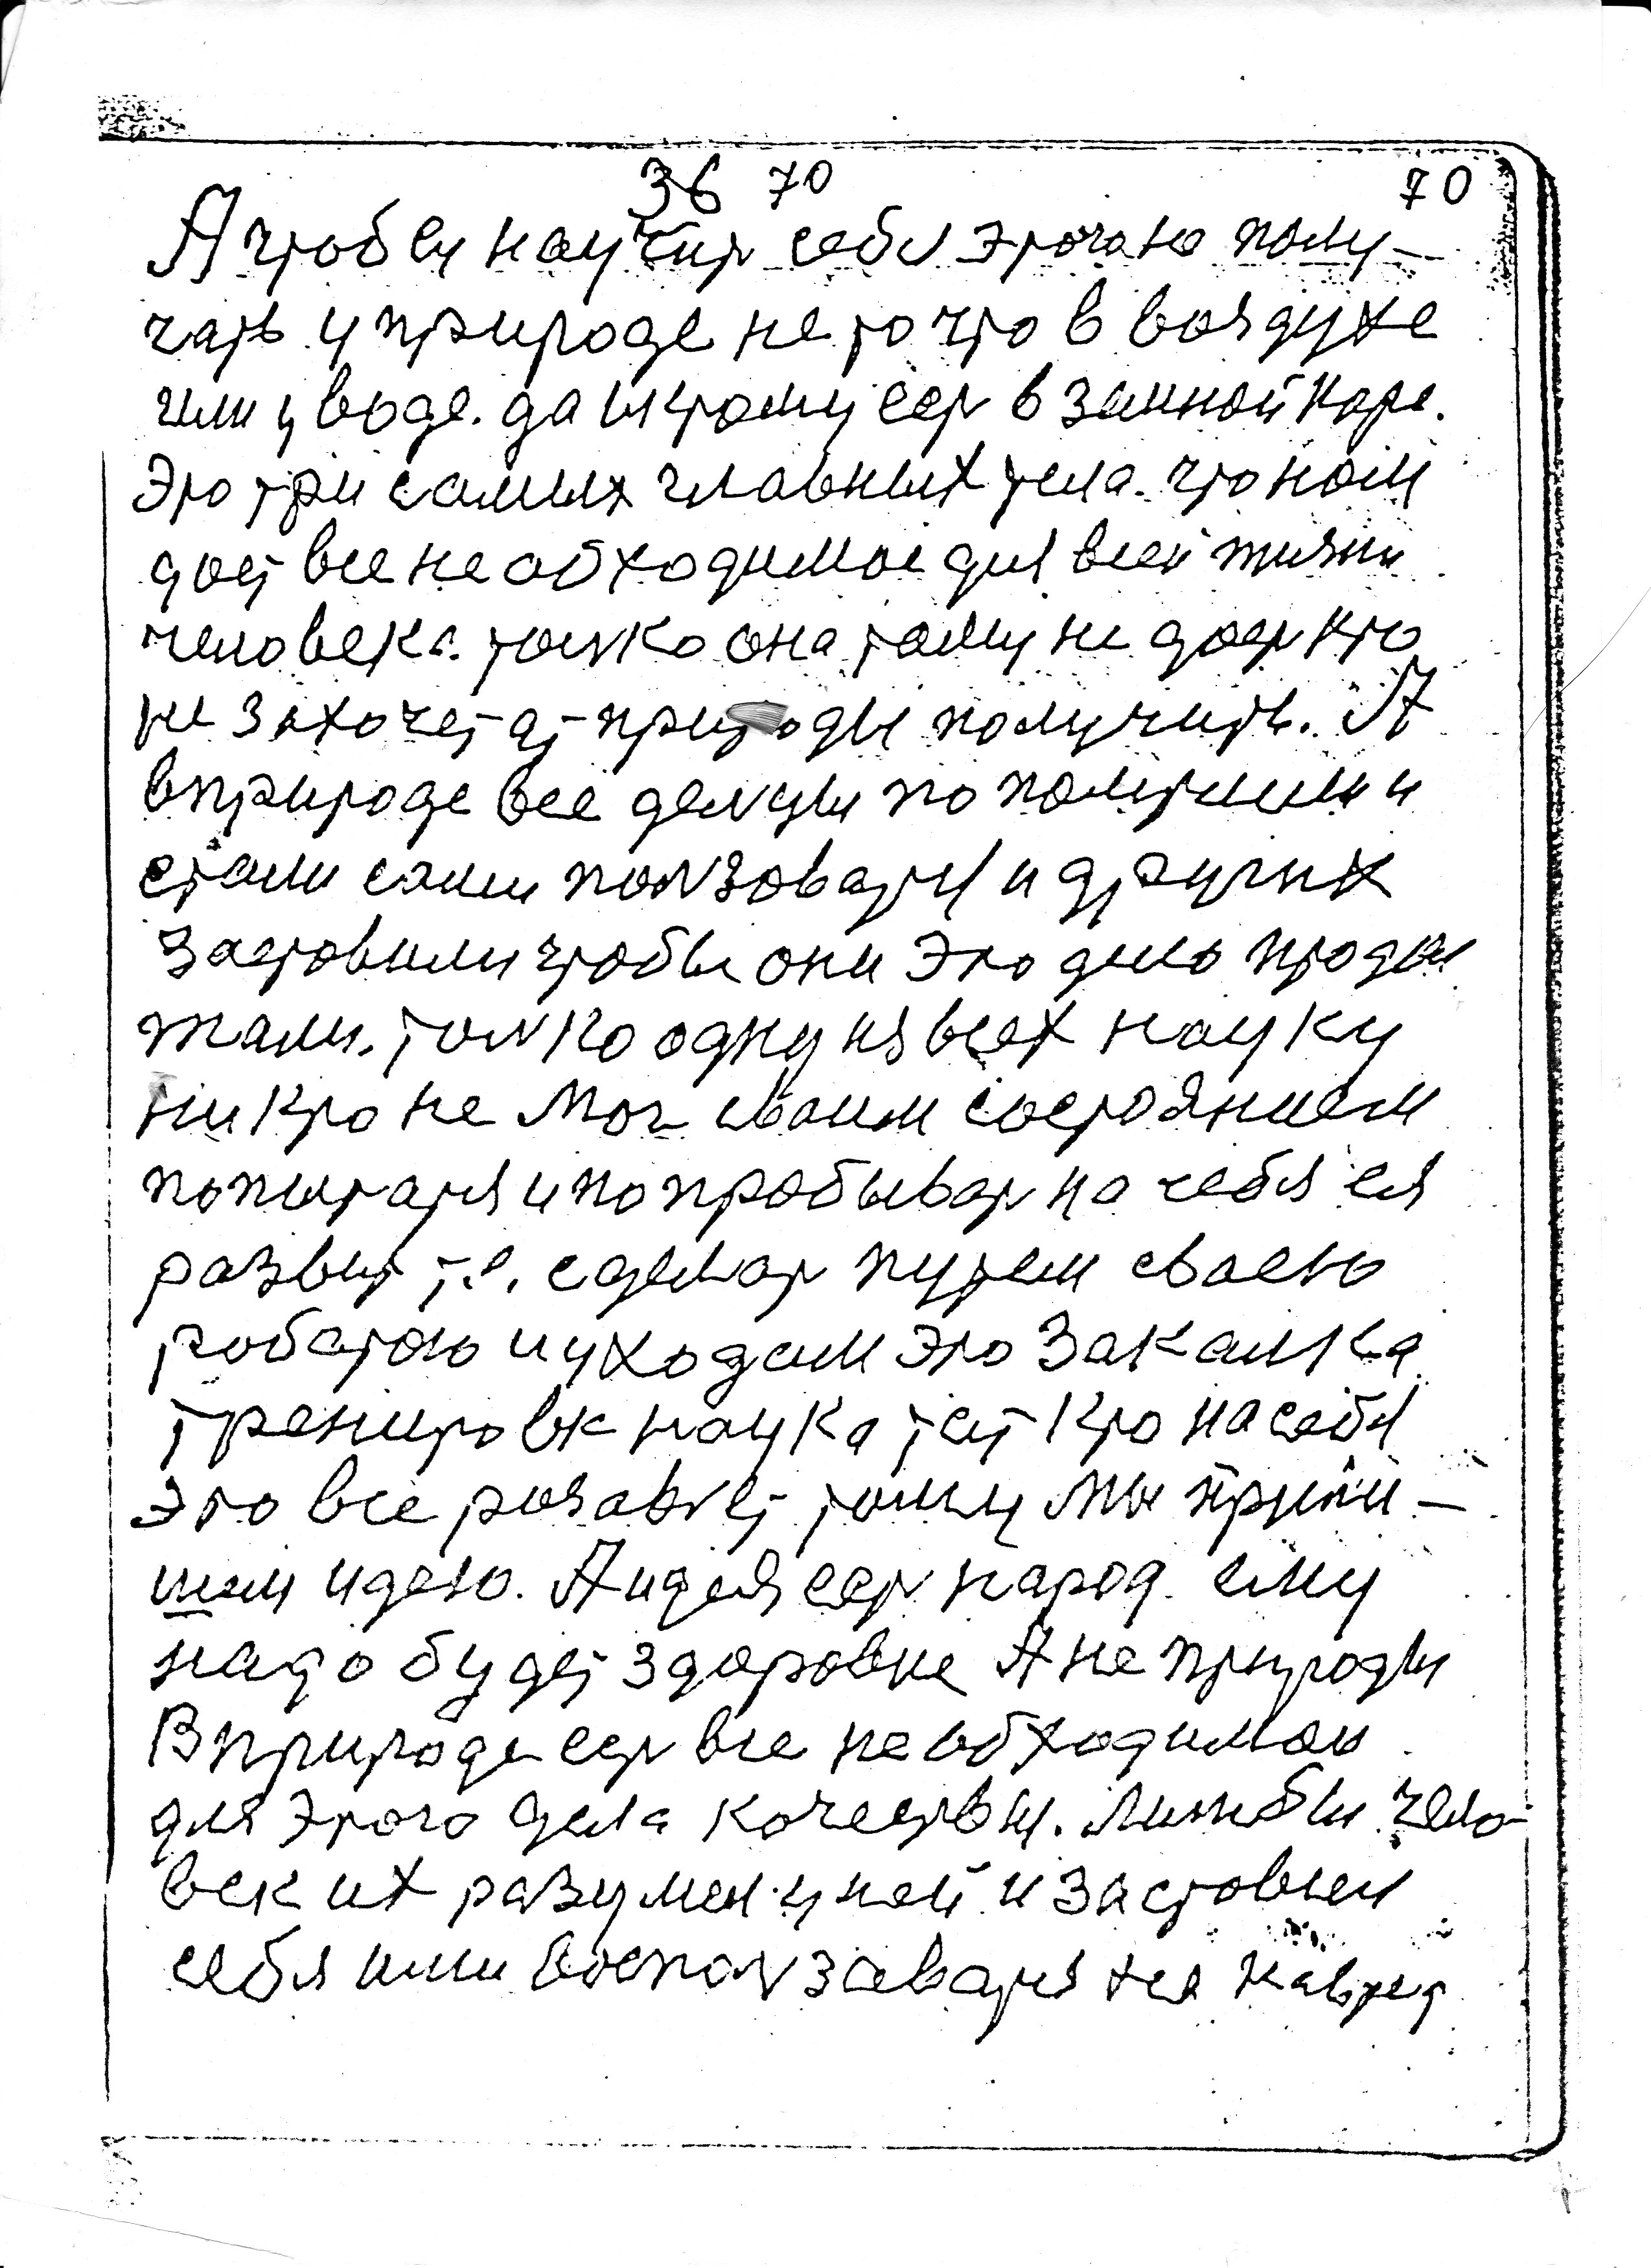 36 70 70
А чтобы научить себя этого не полу-
чать у природе не то что в воздухе
или у воде. да и к тому есть в земной каре.
Это три самых главных тела. что нам
дает все необходимое для всей жизни
человека. только она тому не даеть кто
не захочет от природы получить. А
в природе все
стали сами ползоватся и других
заставили чтобы они это дело продол
жали. только одну из всех науку
никто не мог своим состоянием
попытатся и попробывать на себя ея
развить т.е. сделать путем своею
работою и уходом это закалка
тренировк наука тот кто на себя
это все тому мы припи-
шим идею. А идея есть народ. ему
надо будет здоровие А не природы
В природе есть все необходимои
для этого дела качествы. Лиж бы чело-
век их разумел у ней и заставил
себя ими воспользаватся